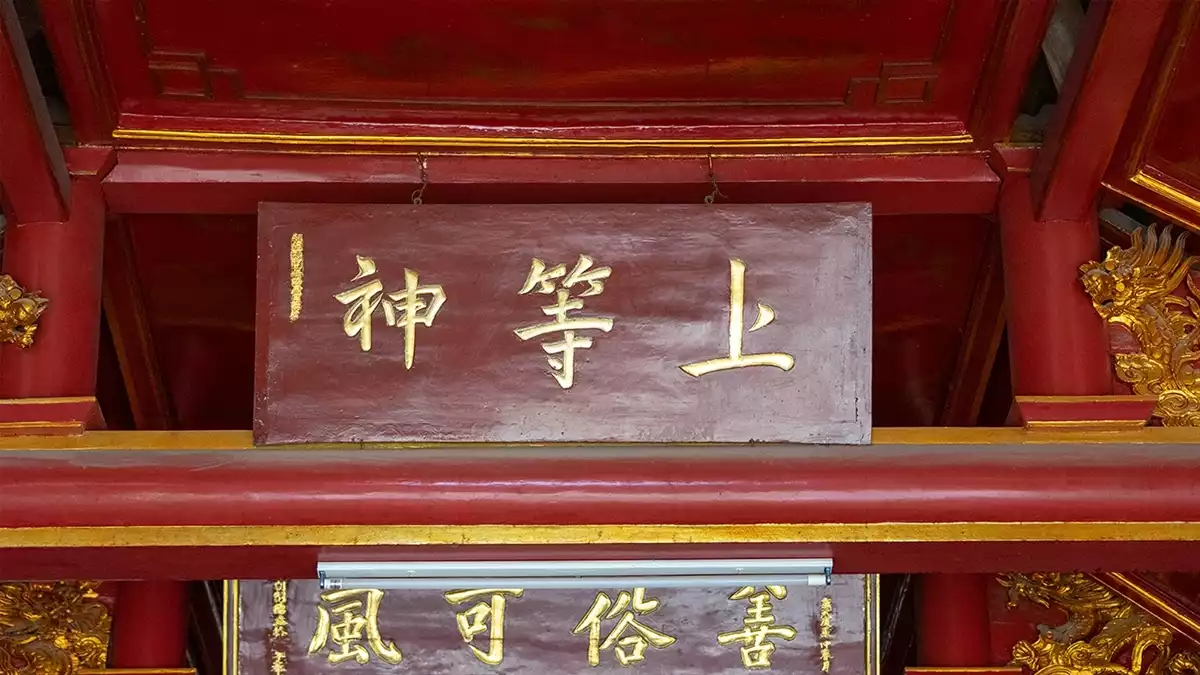 上等神
善俗可風